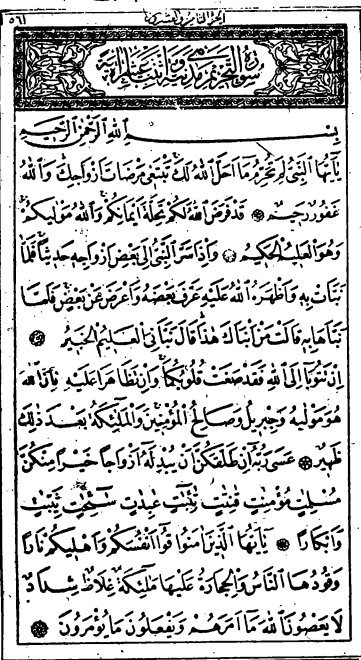 الجزء الثامن والعشرون ٥٦١
سورة التحريم مدنية وهي اثنتا عشرة آية
بسم الله الرحمن الرحيم
يَا أَيُّهَا النَّبِيُّ لِمَ تُحَرِّمُ مَا أَحَلَّ اللهُ لَكَ تَبْتَغِي مَرْضَاتَ أَزْوَاجِكَ وَاللهُ
غَفُورٌ رَحِيمٌ قَدْ فَرَضَ اللهُ لَكُمْ تَحِلَّةَ أَيْمَانِكُمْ وَاللهُ مَوْلَيكُمْ
وَهُوَ الْعَلِيمُ الْحَكِيمُ وَإِذْ أَسَرَّ النَّبِيُّ إِلَى بَعْضِ أَزْوَاجِهِ حَدِيثًا فَلَمَّا
نَبَّأَتْ بِهِ وَأَظْهَرَهُ اللهُ عَلَيْهِ عَرَّفَ بَعْضَهُ وَأَعْرَضَ عَنْ بَعْضٍ فَلَمَّا
نَبَّأَهَا بِهِ قَالَتْ مَنْ أَنْبَأَكَ هَذَا قَالَ نَبَّأَنِيَ الْعَلِيمُ الْخَبِيرُ
إِنْ تَتُوبَا إِلَى اللهِ فَقَدْ صَغَتْ قُلُوبُكُمَا وَإِنْ تَظَاهَرَا عَلَيْهِ فَإِنَّ اللهَ
هُوَ مَوْلَيهُ وَجِبْرِيلُ وَصَالِحُ الْمُؤْمِنِينَ وَالْمَلَئِكَةُ بَعْدَ ذَلِكَ
ظَهِيرٌ عَسَى رَبُّهُ إِنْ طَلَّقَكُنَّ أَنْ يُبْدِلَهُ أَزْوَاجًا خَيْرًا مِنْكُنَّ
مُسْلِمَاتٍ مُؤْمِنَاتٍ قَانِتَاتٍ تَائِبَاتٍ عَابِدَاتٍ سَائِحَاتٍ ثَيِّبَاتٍ
وَأَبْكَارًا يَا أَيُّهَا الَّذِينَ آمَنُوا قُوا أَنْفُسَكُمْ وَأَهْلِيكُمْ نَارًا
وَقُودُهَا النَّاسُ وَالْحِجَارَةُ عَلَيْهَا مَلَئِكَةٌ غِلَاظٌ شِدَادٌ
لَا يَعْصُونَ اللهَ مَا أَمَرَهُمْ وَيَفْعَلُونَ مَا يُؤْمَرُونَ